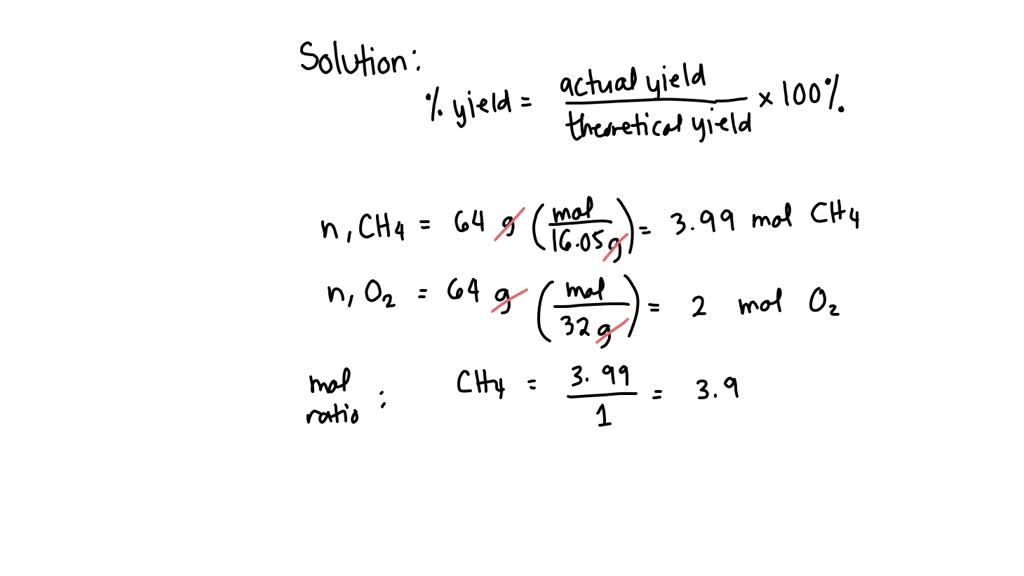 Solution:
% yield = actual yield / theoretical yield × 100%
n, CH4 = 64 g (mol / 16.05g) = 3.99 mol CH4
n, O2 = 64 g (mol / 32g) = 2 mol O2
mol ratio : CH4 = 3.99 / 1 = 3.9